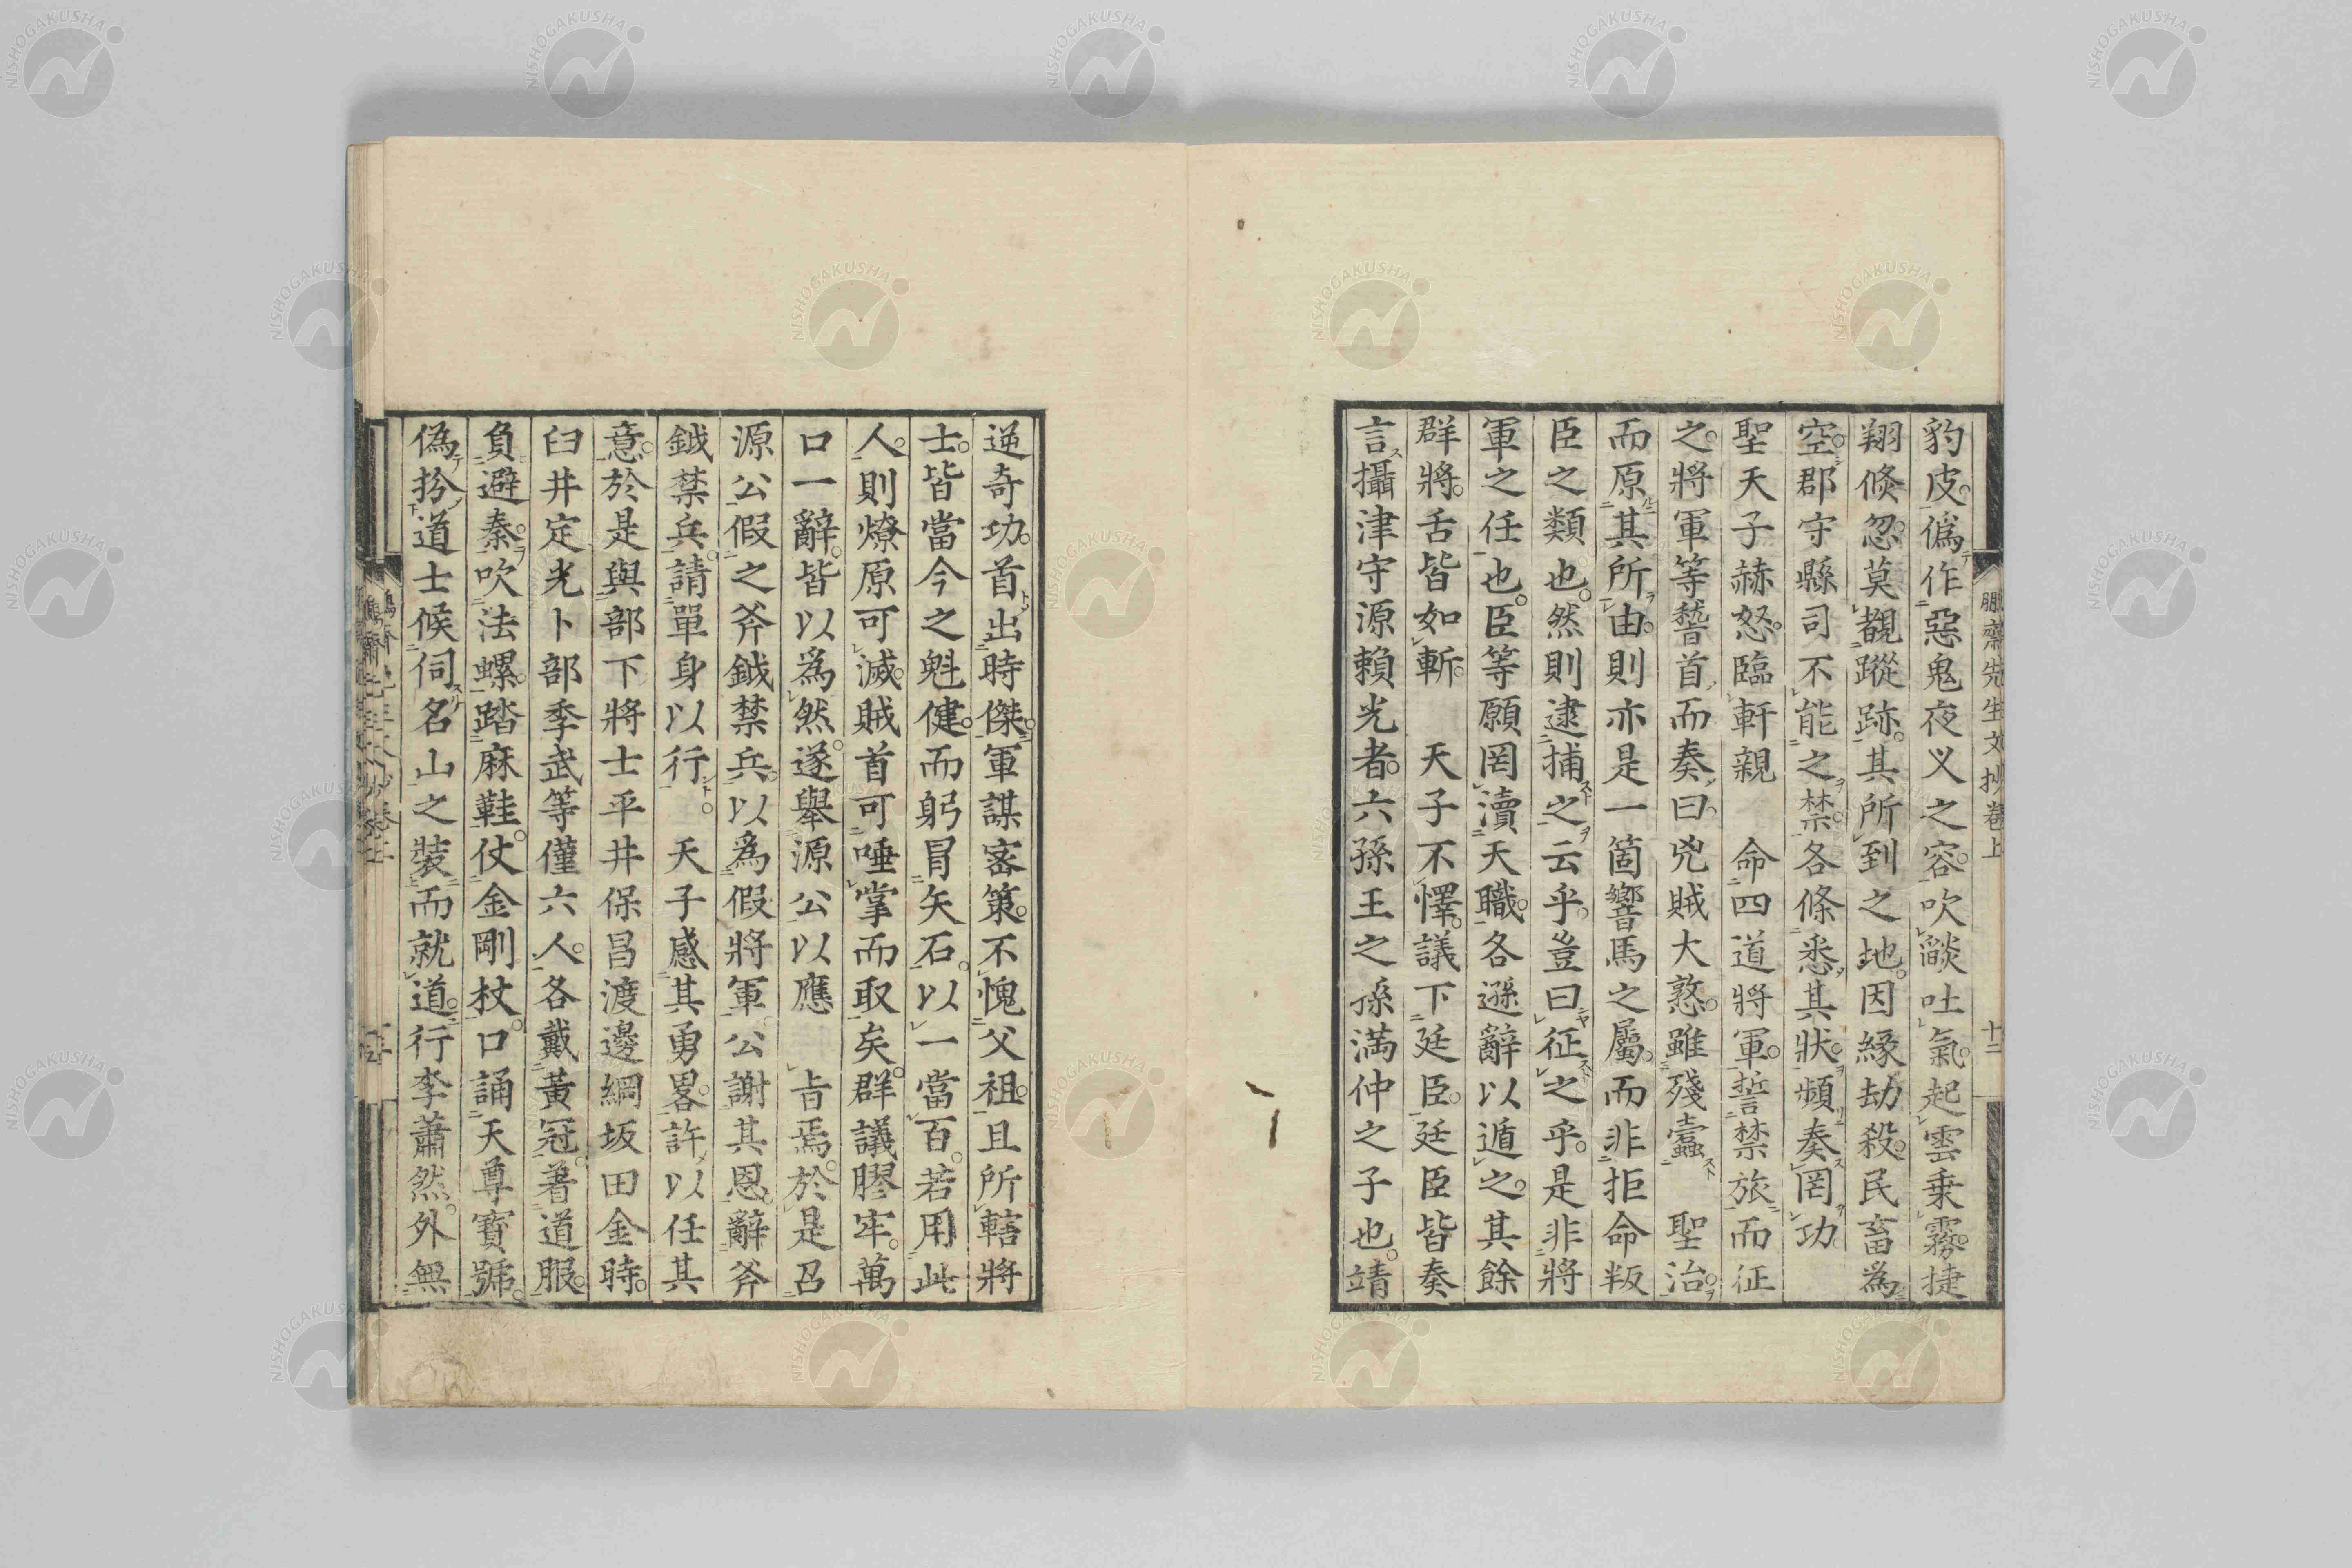 豹皮。僞作惡鬼夜叉之容。吹燄吐氣。起雲乗霧。捷
翔倏忽。莫覩蹤跡。其所到之地。因緣劫殺。民畜爲
空。郡守縣司不能之禁。各條悉其狀。頻奏罔功
聖天子赫怒。臨軒親　命四道將軍。誓禁旅而征
之。將軍等䭫首而奏曰。兇賊大憝。雖殘蠧　聖治。
而原其所由。則亦是一箇響馬之屬。而非拒命叛
臣之類也。然則逮捕之云乎。豈曰征之乎。是非將
軍之任也。臣等願罔瀆天職。各遜辭以遁之。其餘
群將。舌皆如斬。　天子不懌。議下廷臣。廷臣皆奏
言。攝津守源賴光者。六孫王之孫滿仲之子也。靖
逆奇功。首出時傑。軍謀密策。不愧父祖。且所轄將
士。皆當今之魁健。而躬冒矢石。以一當百。若用此
人。則燎原可滅。賊首可唾掌而取矣。群議膠牢。萬
口一辭。皆以爲然。遂擧源公以應　旨焉。於是召
源公。假之斧鉞禁兵。以爲假將軍。公謝其恩。辭斧
鉞禁兵。請單身以行。　天子感其勇畧。許以任其
意。於是與部下將士平井保昌渡邊綱坂田金時。
臼井定光卜部季武等僅六人。各戴黃冠。著道服。
負避秦。吹法螺。踏麻鞋。仗金剛杖。口誦天尊寶號。
僞扮道士候伺名山之裝而就道。行李蕭然。外無
鵬齋先生文抄卷上
十二